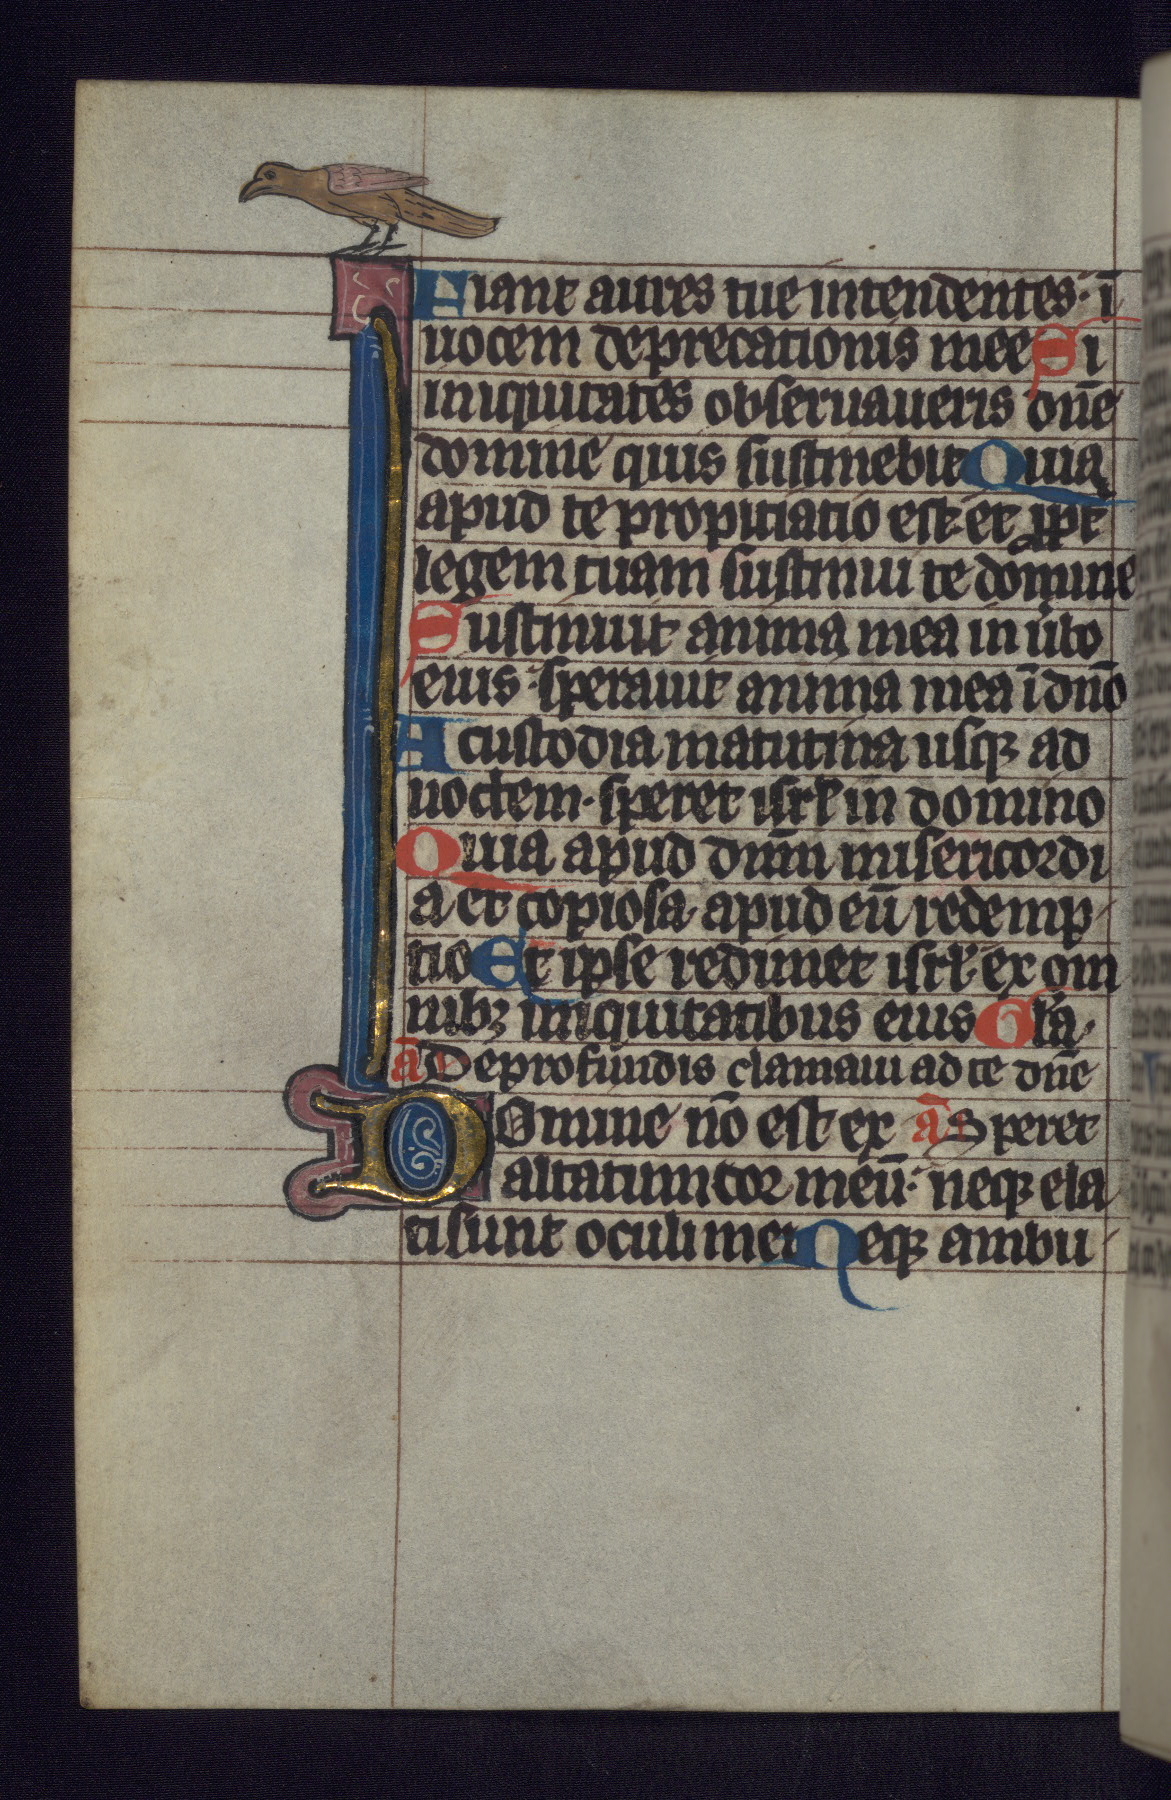 Fiant aures tue intendentes· ī
uocem deprecationis mee Si
iniquitates obseruaueris dn̄e
domine quis sustinebit Quia
apud te propitiatio est· et ꝓpt̄
legem tuam sustinui te domine
Sustinuit anima mea in u̓bo
eius· sperauit anima mea ī dn̄o
A custodia matutina usqꝫ ad
noctem· speret isrl̄ in domino
Quia apud dn̄m misericordi
a et copiosa apud eū redemp
tio Et ipse redimet isrl̄· ex om
nibꝫ iniquitatibus eius Gl̄a
ā De profundis clamaui ad te dn̄e
Domine nō est ex ā Speret
altatum cor meū· neqꝫ ela
ti sunt oculi mei Neqꝫ ambu